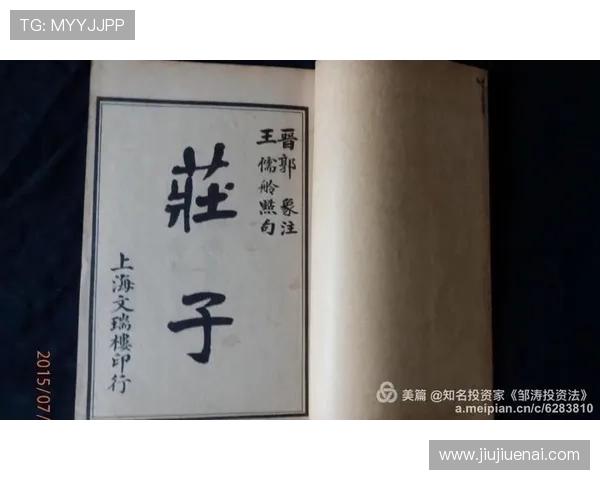 TG: MYYJJPP
晉郭象注
王儒舲點句
莊子
上海文瑞樓印行
2015/07/
美篇 @知名投资家《邹涛投资法》
a.meipian.cn/c/6283810
www.jiujiuenai.com